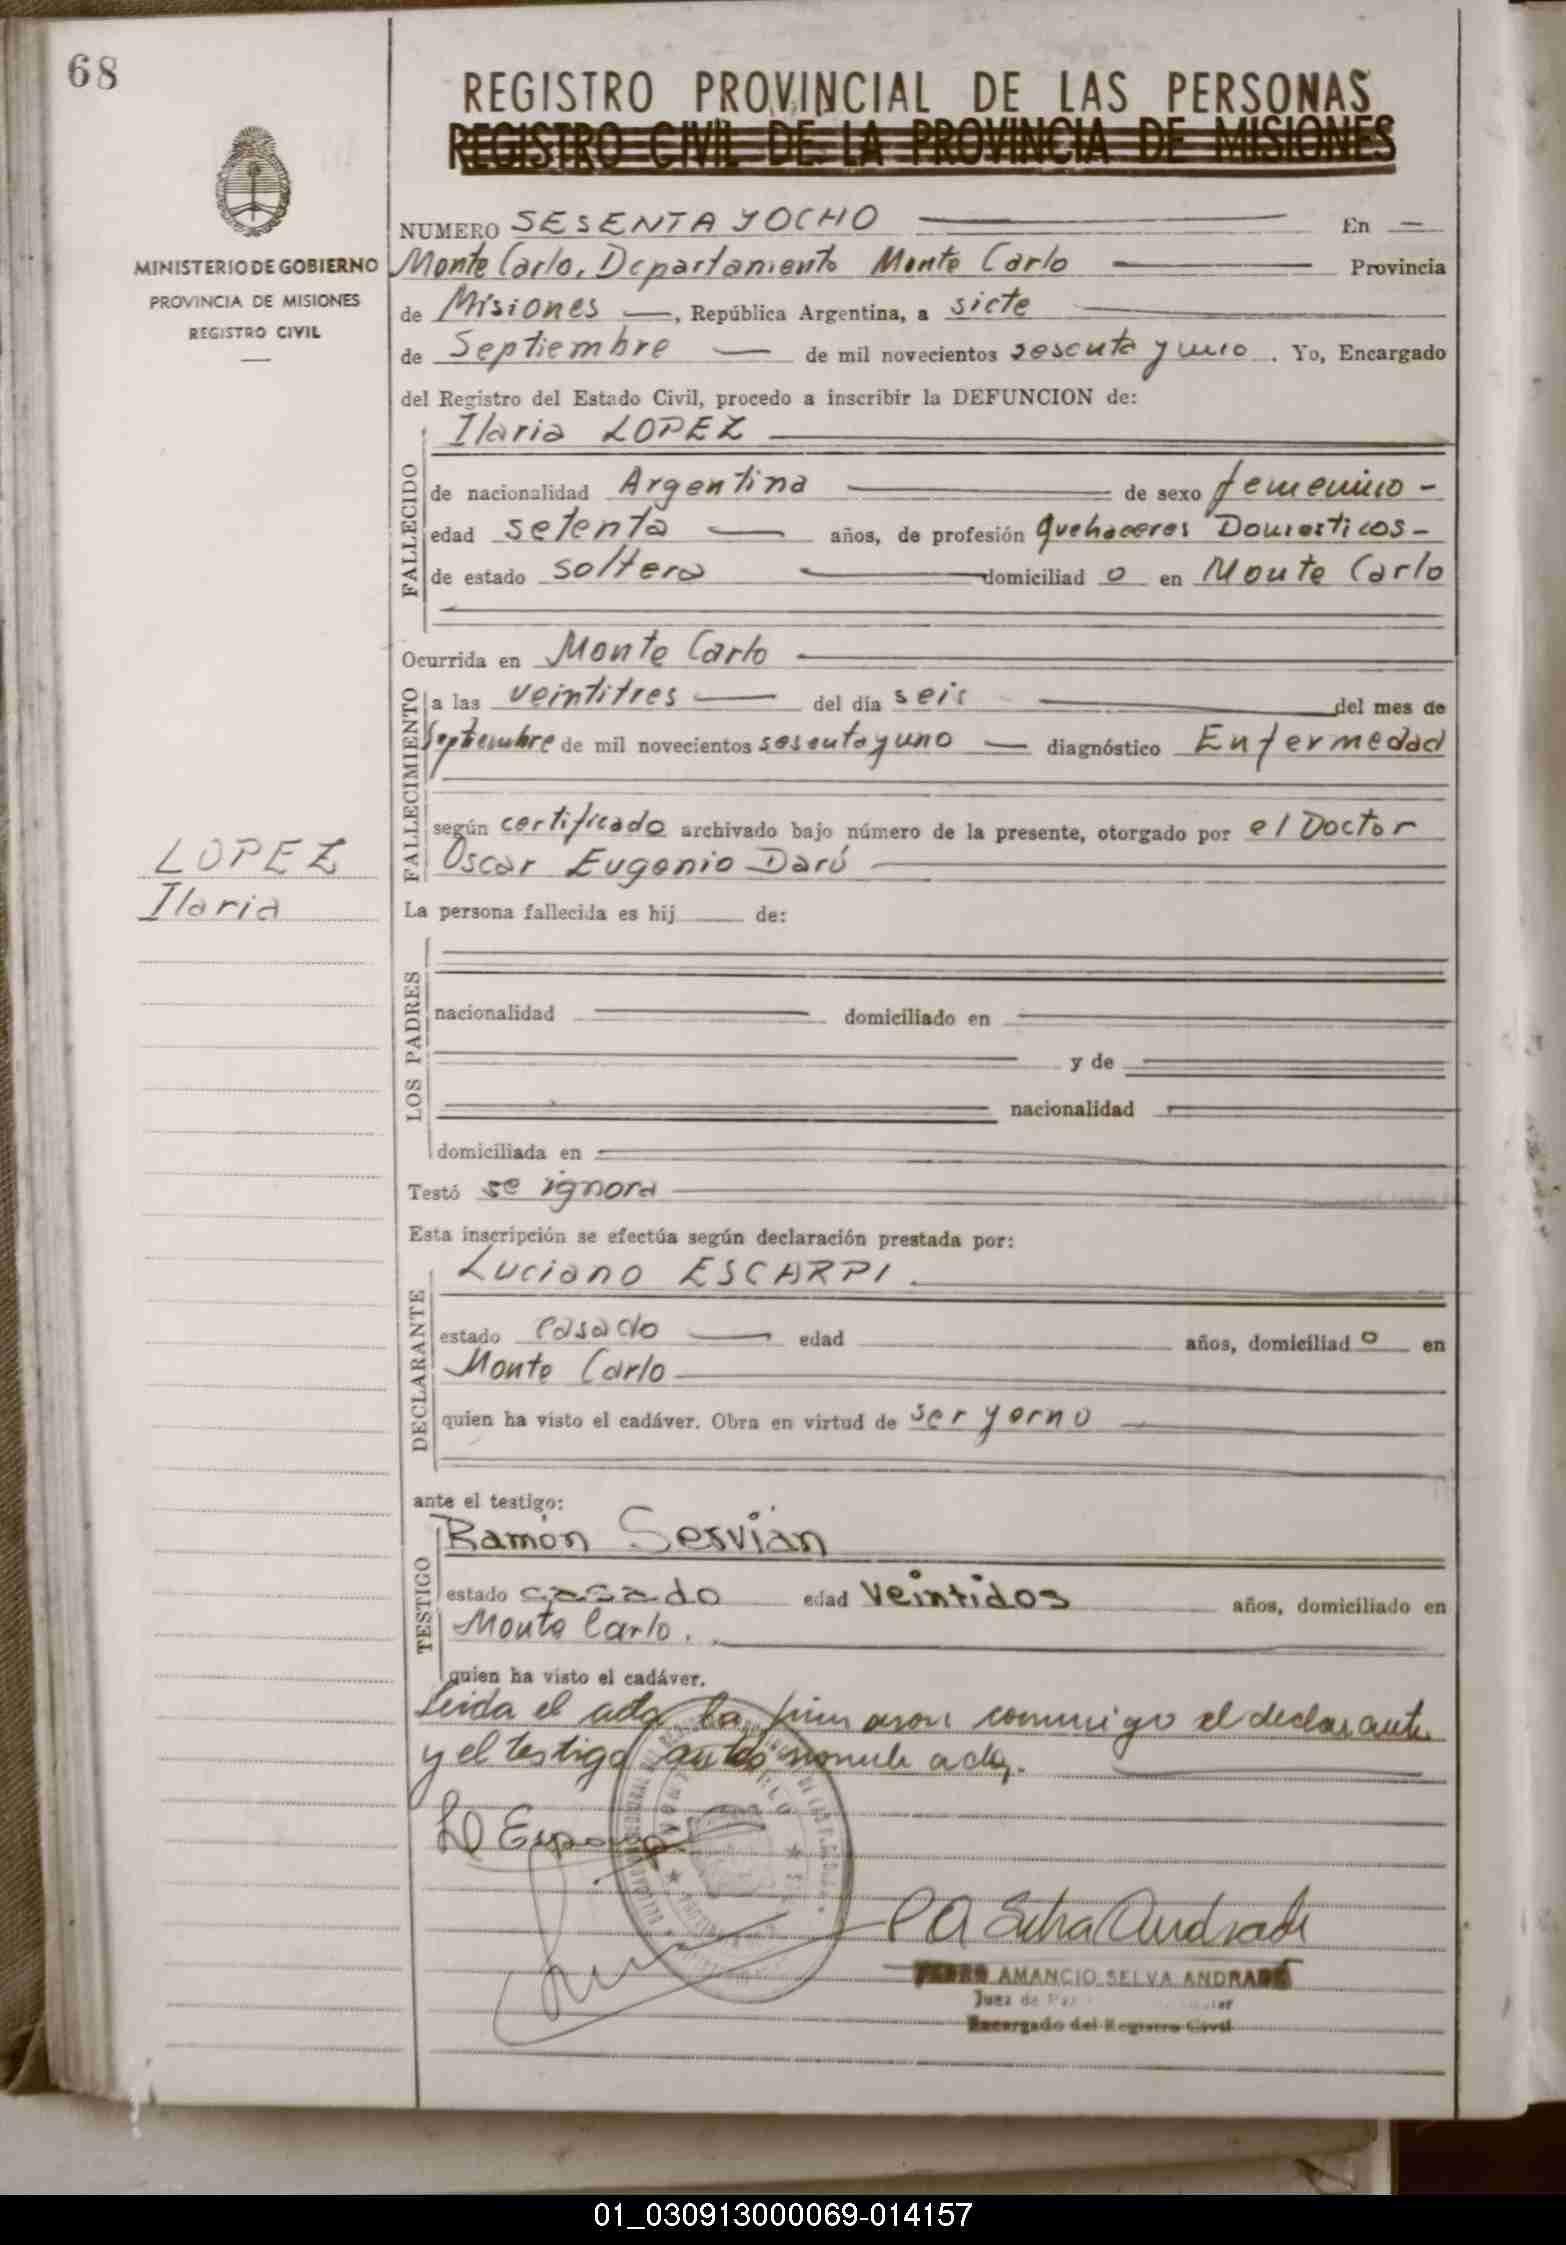 68
REGISTRO PROVINCIAL DE LAS PERSONAS
REGISTRO CIVIL DE LA PROVINCIA DE MISIONES
MINISTERIO DE GOBIERNO
PROVINCIA DE MISIONES
REGISTRO CIVIL
NUMERO SESENTA Y OCHO En
Monte Carlo, Departamento Monte Carlo Provincia
de Misiones, República Argentina, a siete
de Septiembre de mil novecientos sesenta y uno. Yo, Encargado
del Registro del Estado Civil, procedo a inscribir la DEFUNCION de:
FALLECIDO
Ilaria LOPEZ
de nacionalidad Argentina de sexo femenino -
edad setenta años, de profesión quehaceres Domesticos -
de estado soltera domiciliad o en Monte Carlo
Ocurrida en Monte Carlo
FALLECIMIENTO
a las veintitres del día seis del mes de
Septiembre de mil novecientos sesenta y uno diagnóstico Enfermedad
según certificado archivado bajo número de la presente, otorgado por el Doctor
Oscar Eugenio Darú
LOPEZ
Ilaria
La persona fallecida es hij de:
LOS PADRES
nacionalidad domiciliado en
y de
nacionalidad
domiciliada en
Testó se ignora
Esta inscripción se efectúa según declaración prestada por:
DECLARANTE
Luciano ESCARPI
estado casado edad años, domiciliad o en
Monte Carlo
quien ha visto el cadáver. Obra en virtud de ser yerno
ante el testigo:
TESTIGO
Ramón Sesvian
estado casado edad veintidos años, domiciliado en
Monte Carlo.
quien ha visto el cadáver.
Leida el acta la firmaron conmigo el declarante
y el testigo antes acta.
PA Selva Andrade
PEDRO AMANCIO SELVA ANDRADE
Juez de Paz
Encargado del Registro Civil
01_030913000069-014157